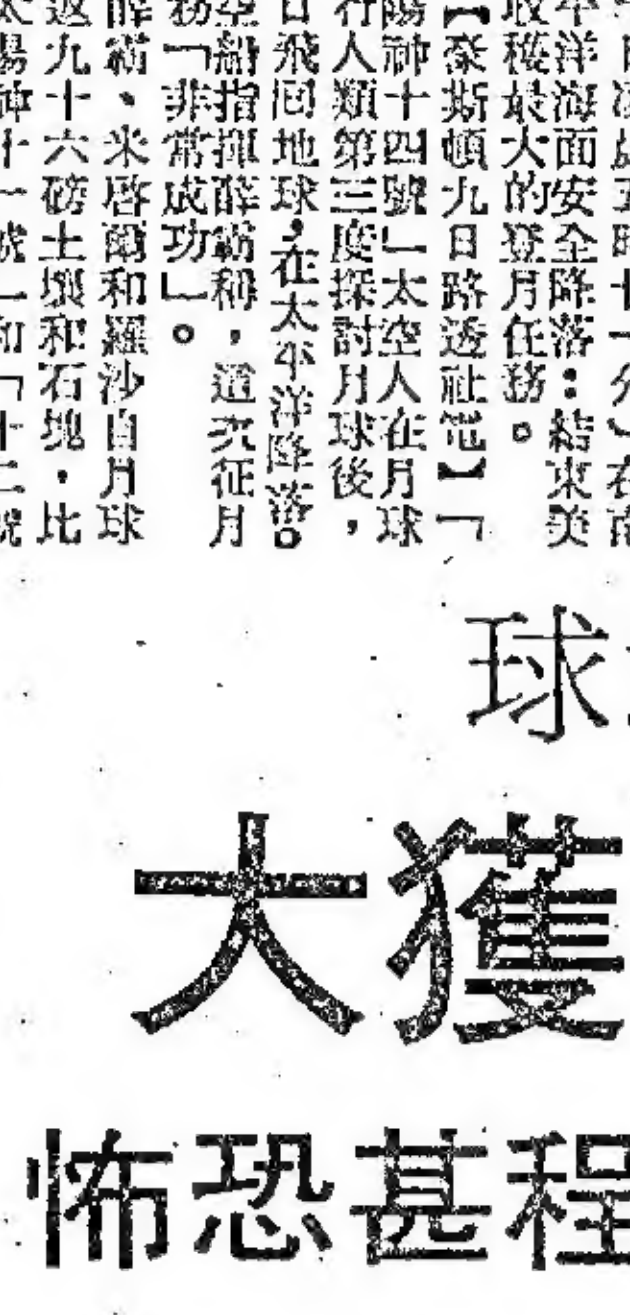 凌晨五時十一分）在南
平洋海面安全降落：結束美
收穫最大的登月任務。
【豪斯頓九日路透社電】「
陽神十四號」太空人在月球
行人類第三度探討月球後，
日飛回地球，在太平洋降落。
空船指揮薛霸稱，這次征月
務「非常成功」。
薛霸、米啓爾和羅沙自月球
返九十六磅土壤和石塊，比
太陽神十一號」和「十二號
球
大獲
怖恐甚程